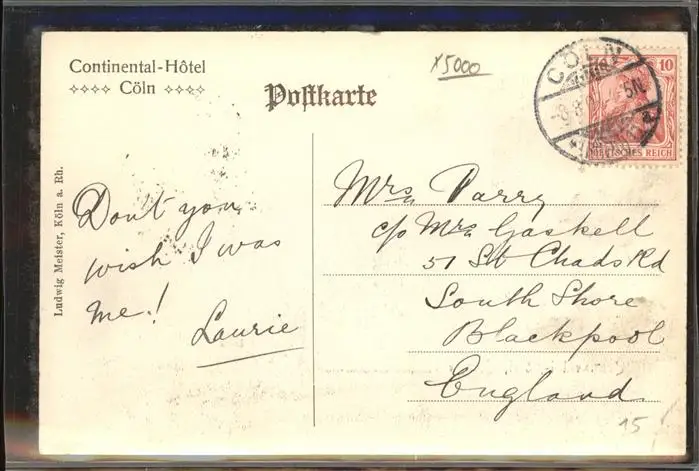 Continental-Hôtel
Cöln
Postkarte
x5000
CÖLN
5N
10
DEUTSCHES REICH
Ludwig Meister, Köln a. Rh.
Don't you
wish I was
me!
Laurie
Mrs Parry
c/o Mrs Gaskell
51 St Chads Rd
South Shore
Blackpool
England
15